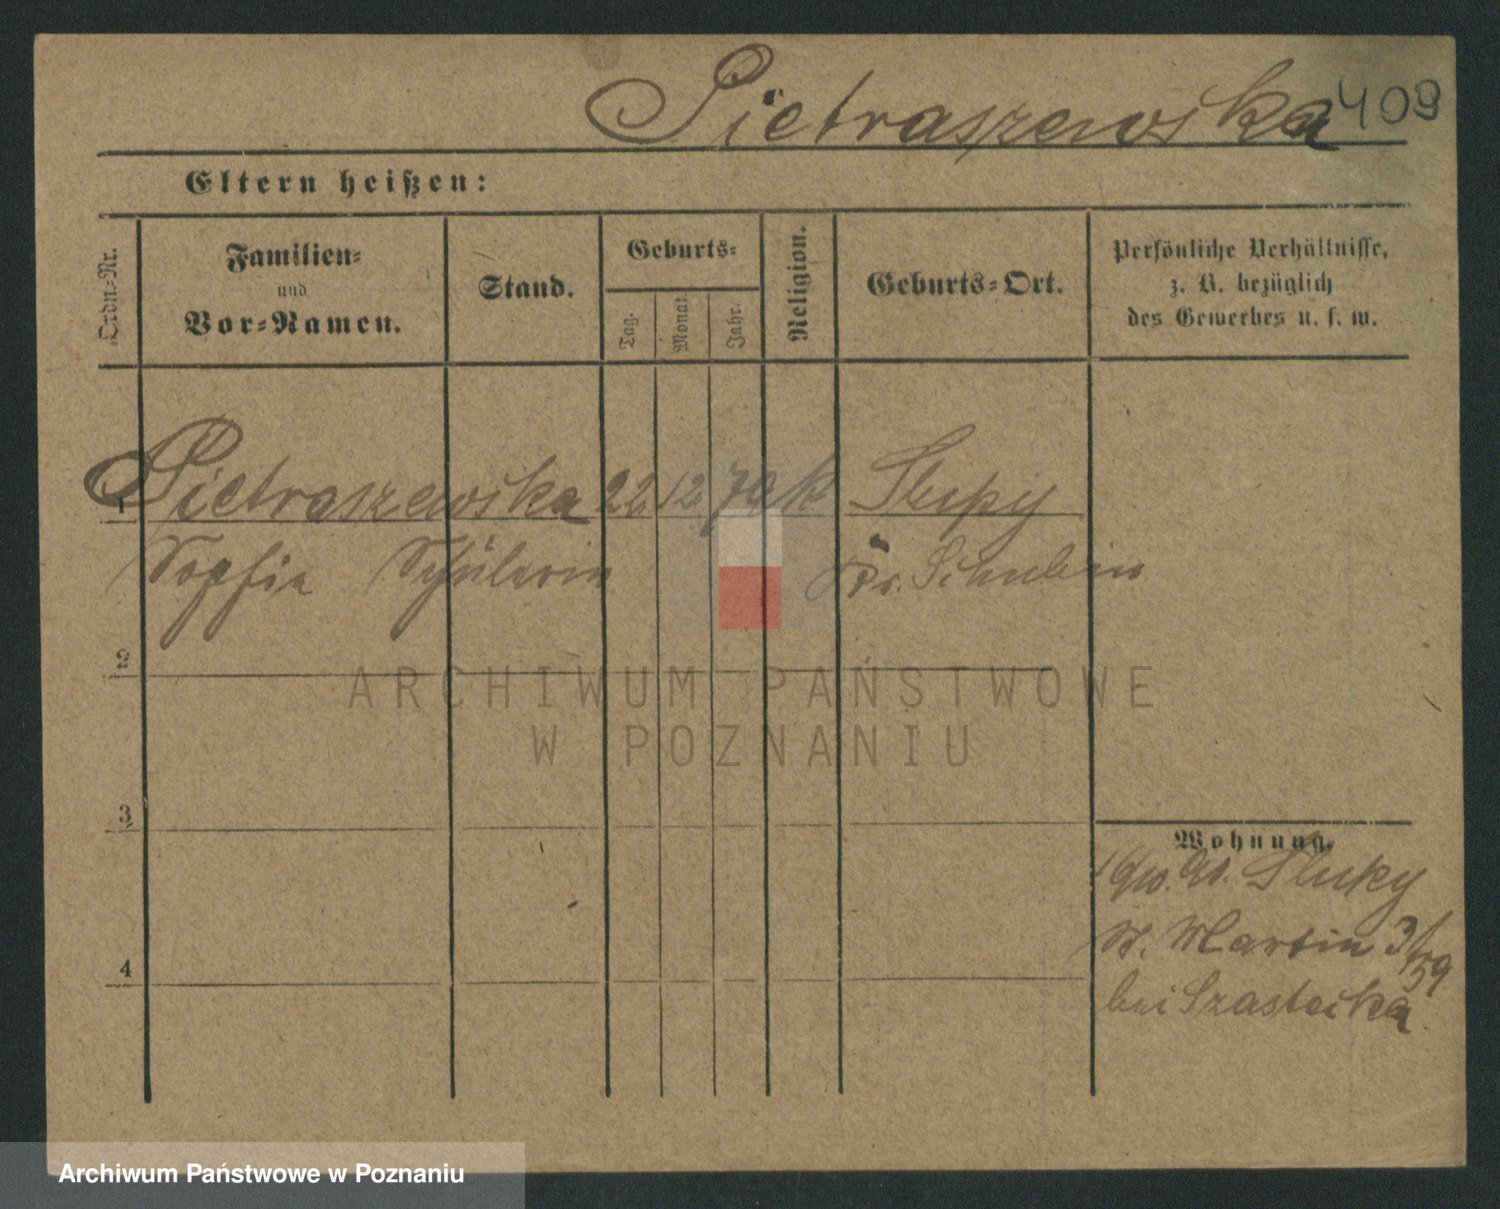 Pietraszewska 409
Eltern heißen:
Ordn.-Nr.
Familien-
und
Vor-Namen.
Stand.
Geburts-
Tag.
Monat.
Jahr.
Religion.
Geburts-Ort.
Persönliche Verhältnisse,
z. B. bezüglich
des Gewerbes u. s. w.
1 Pietraszewska 22 12 79 k Slupy
Sophia Schülerin Kr. Schubin
2
3
4
Wohnung.
Slupy
St. Martin 3/
bei
ARCHIWUM PAŃSTWOWE
W POZNANIU
Archiwum Państwowe w Poznaniu